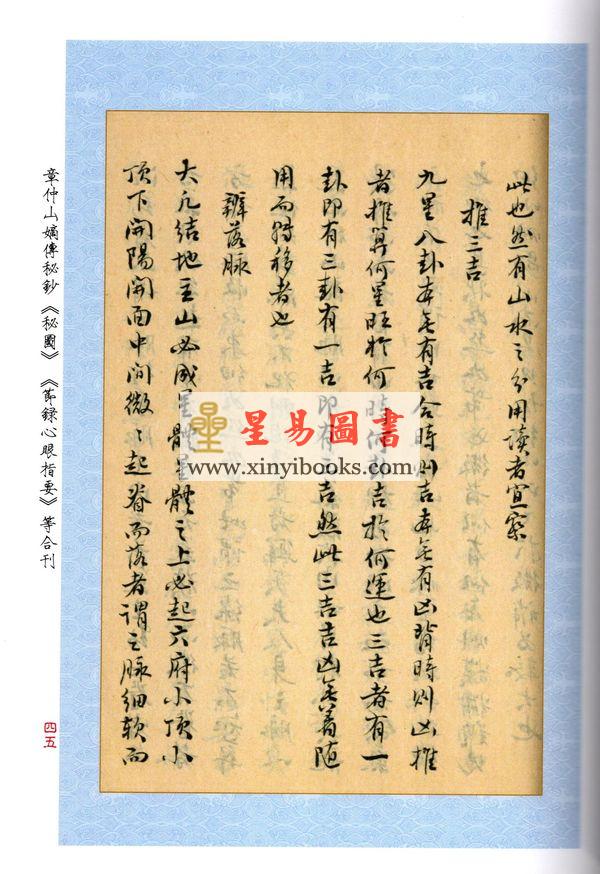 此也然有山水之分用讀者宜察
推三吉
九星八卦本無有吉合時則吉本無有凶背時則凶推
者推算何星旺於何時何卦吉於何運也三吉者有一
卦即有三卦有一吉即有三吉然此三吉吉凶無著隨
用而轉移者也
辨落脉
大凡結地主山必成星體星體之上必起六府小頂小
頂下開陽開面中间微々起脊而落者謂之脉细软而
章仲山嫡傳秘鈔《秘圖》《節錄心眼指要》等合刊
四五
星易圖書
www.xinyibooks.com